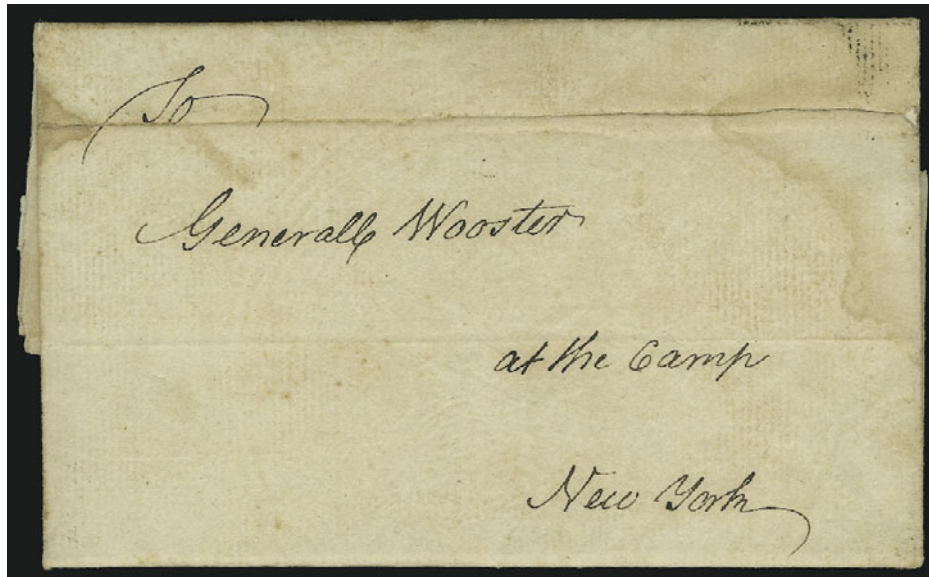 To
Generall Wooster
at the Camp
New York